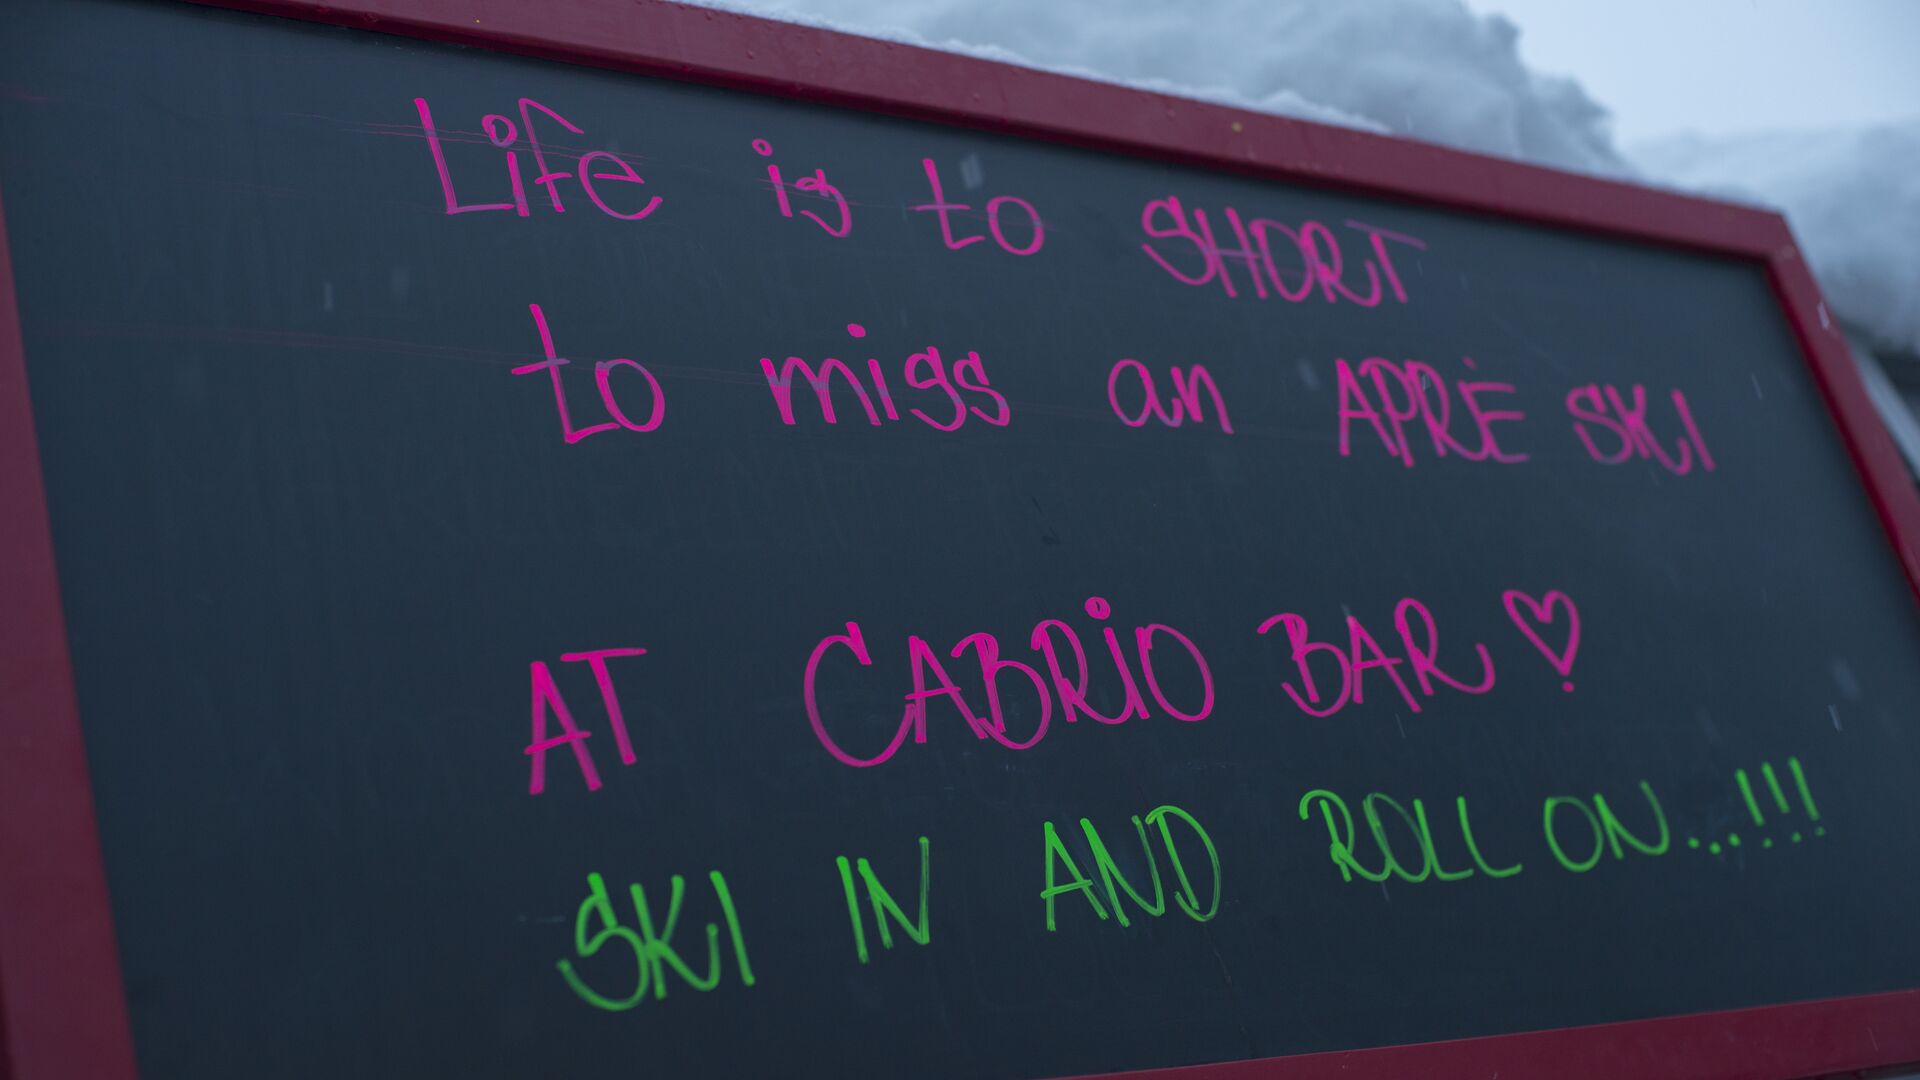 Life is to SHORT
to miss an APRÈ SKI
AT CABRIO BAR ♡
SKI IN AND ROLL ON...!!!